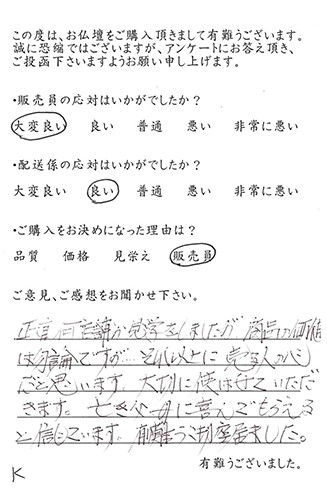 この度は、お仏壇をご購入頂きまして有難うございます。
誠に恐縮ではございますが、アンケートにお答え頂き、
ご投函下さいますようお願い申し上げます。
・販売員の応対はいかがでしたか?
大変良い 良い 普通 悪い 非常に悪い
・配送係の応対はいかがでしたか?
大変良い 良い 普通 悪い 非常に悪い
・ご購入をお決めになった理由は?
品質 価格 見栄え 販売員
ご意見、ご感想をお聞かせ下さい。
正直何店舗か見学をしましたが 商品の価値
は勿論ですが… それ以上に 売る人の心
だと思います。大切に使わせていただ
きます。亡き父母に喜んでもらえる
と信じています。有難うございました。
有難うございました。
K